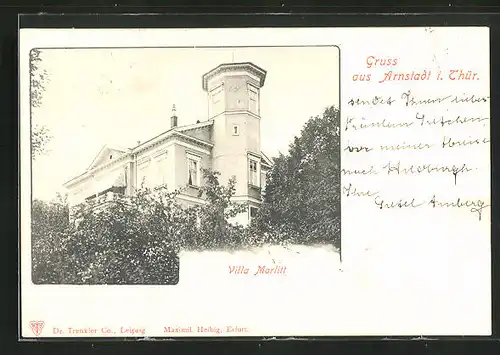 Gruss
aus Arnstadt i. Thür.
sendet Ihnen liebes
Fräulein Gretchen
vor meiner Abreise
nach Hildburgh.
Ihre
Gretel Amberg
Villa Marlitt
Dr. Trenkler Co., Leipzig Maximil. Helbig, Erfurt.